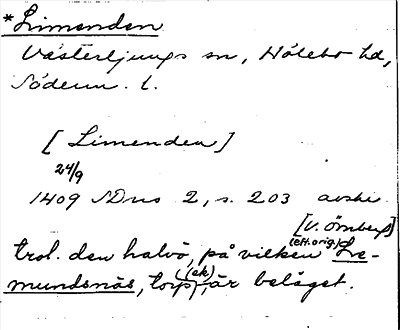 *Limenden
Västerljungs sn, Hölebo hd,
Söderm. l.
[Limenden]
24/9
1409 SDns 2, s. 203 avskr.
[V. Örnberg]
(eft. orig.)
trol. den halvö, på vilken Lre-
mundsnäs, torp, (ek) är beläget.